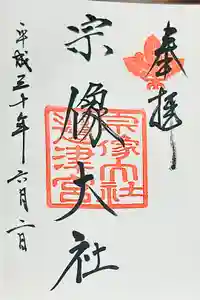 奉拝
宗像大社
宗像大社
辺津宮
平成三十年六月二日